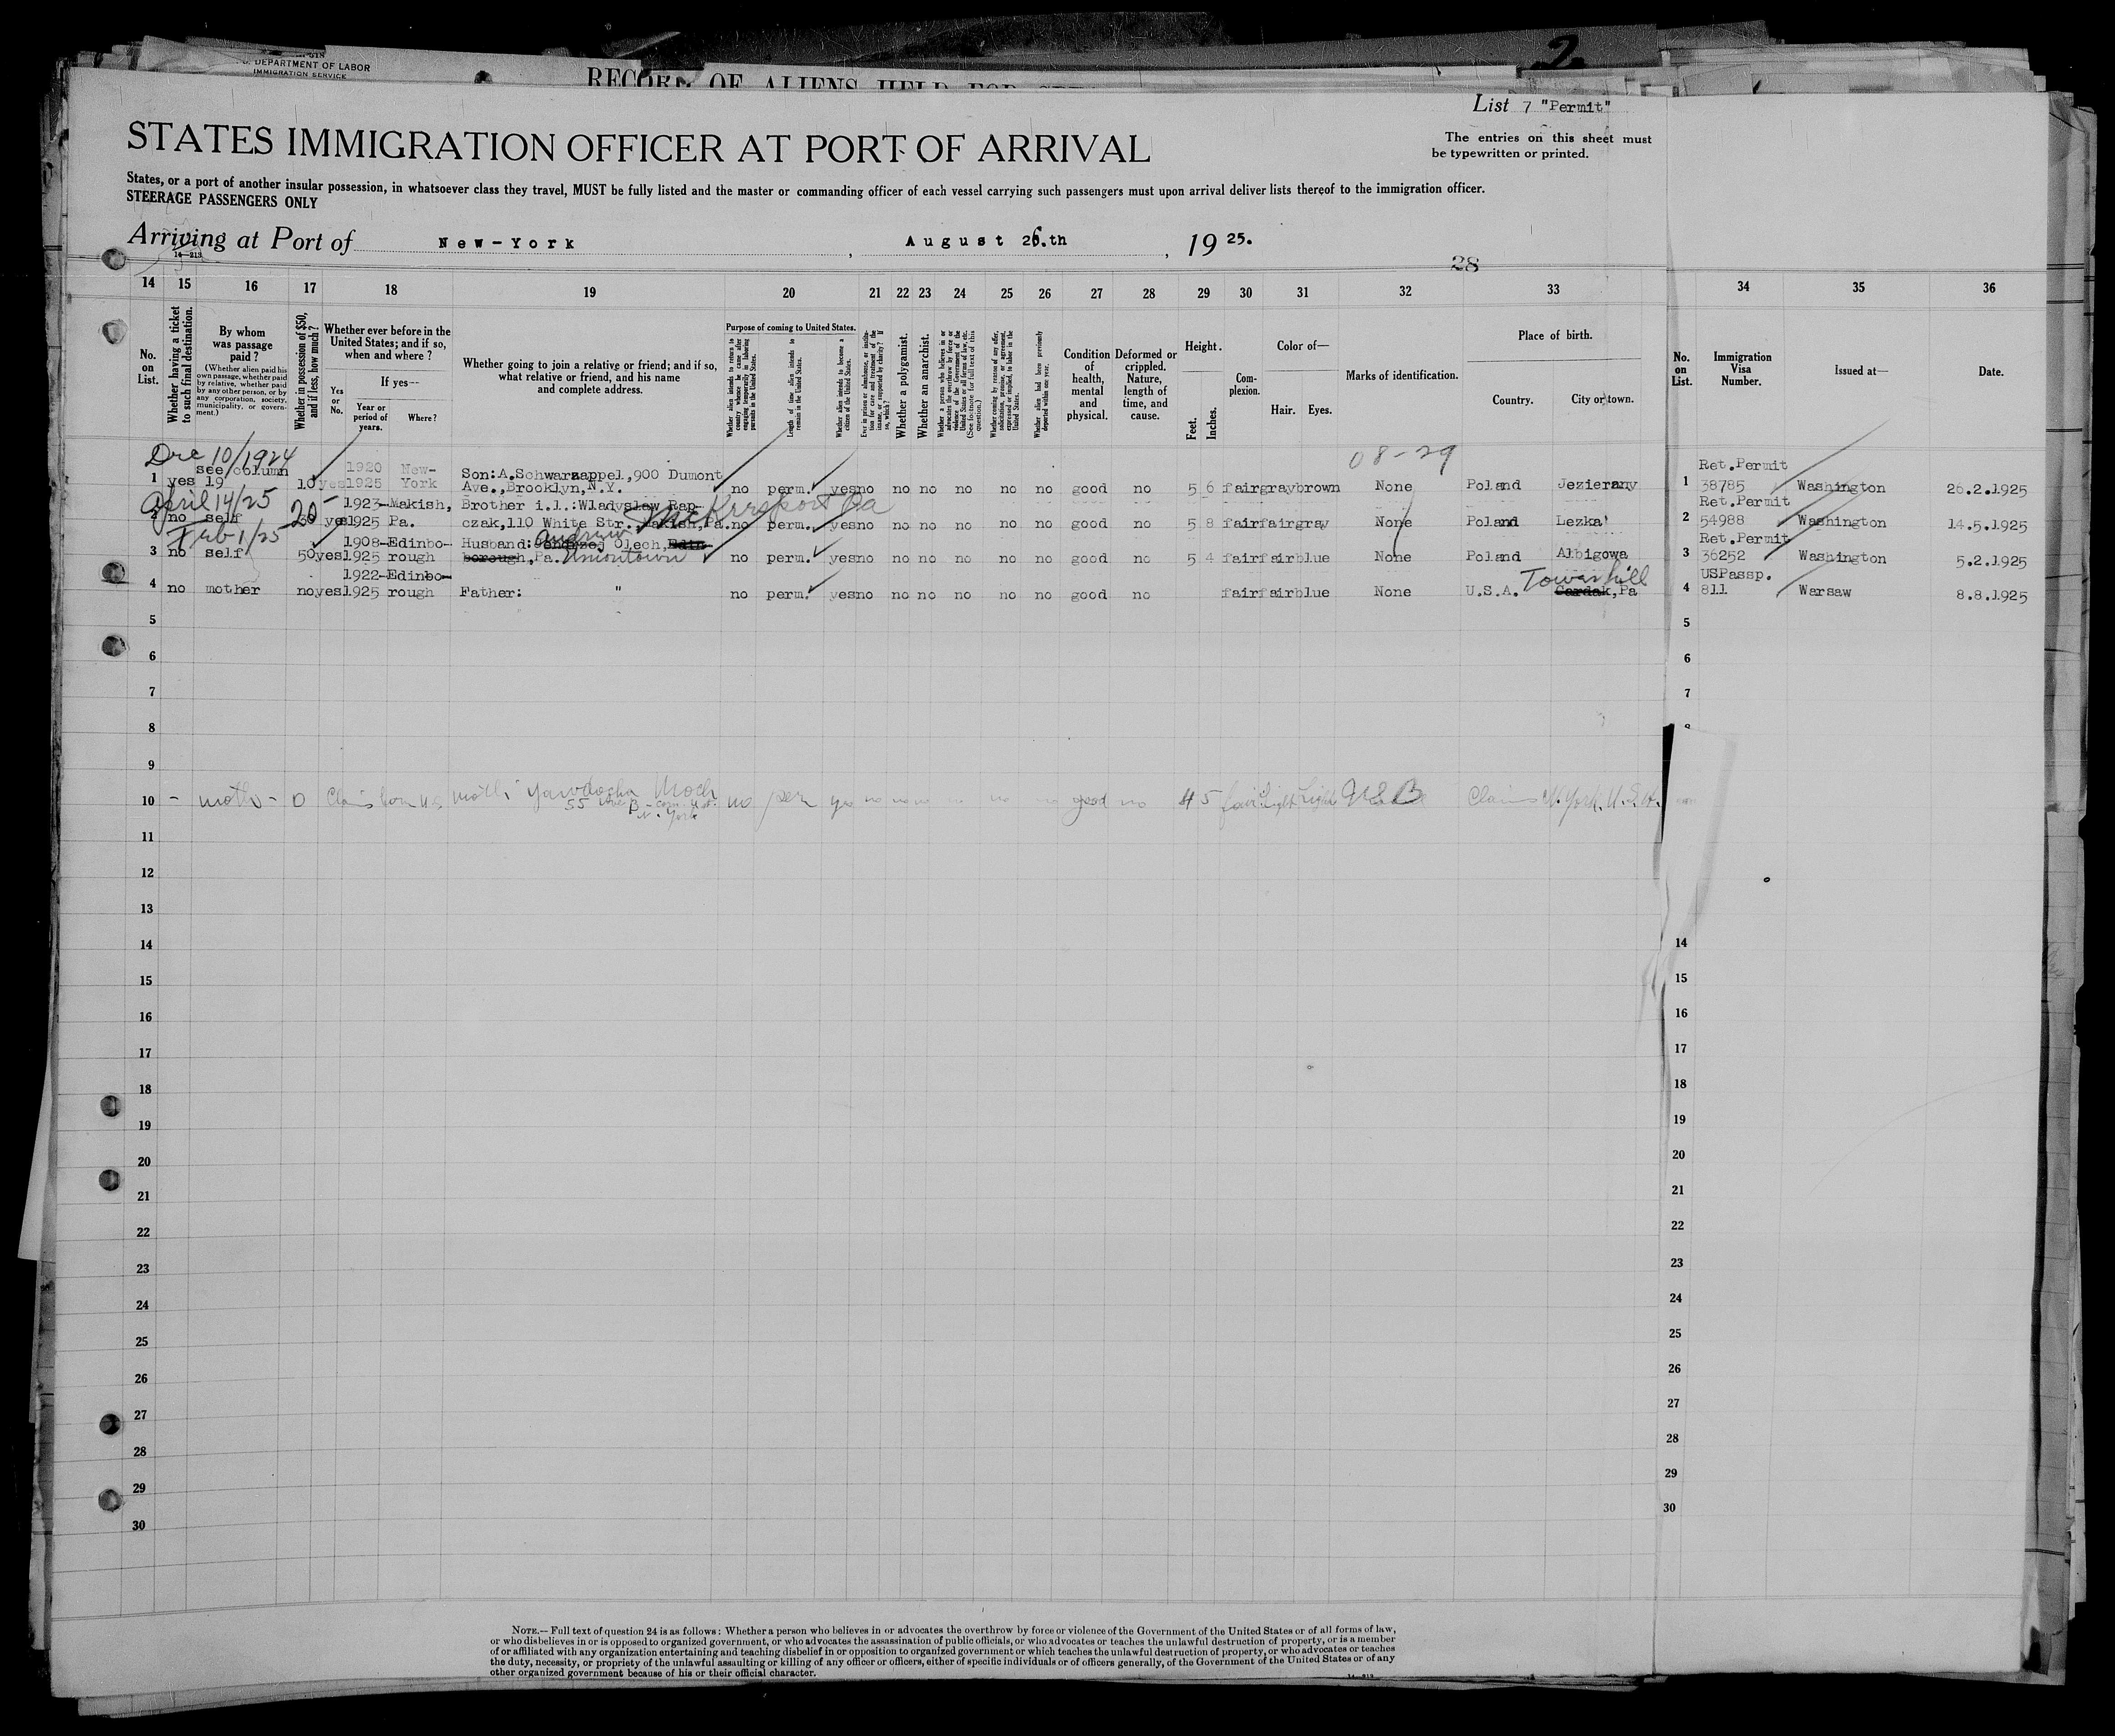 DEPARTMENT OF LABOR
IMMIGRATION SERVICE
RECORD OF ALIENS HELD FOR
2
List 7 "Permit"
STATES IMMIGRATION OFFICER AT PORT OF ARRIVAL
The entries on this sheet must
be typewritten or printed.
States, or a port of another insular possession, in whatsoever class they travel, MUST be fully listed and the master or commanding officer of each vessel carrying such passengers must upon arrival deliver lists thereof to the immigration officer.
STEERAGE PASSENGERS ONLY
Arriving at Port of New-York, August 26.th, 1925.
14—213
28
14 15 16 17 18 19 20 21 22 23 24 25 26 27 28 29 30 31 32 33 34 35 36
No. on List.
Whether having a ticket to such final destination.
By whom was passage paid?
(Whether alien paid his own passage, whether paid by relative, whether paid by any other person, or by any corporation, society, municipality, or government.)
Whether in possession of $50, and if less, how much?
Whether ever before in the United States; and if so, when and where?
Yes or No.
If yes—
Year or period of years.
Where?
Whether going to join a relative or friend; and if so, what relative or friend, and his name and complete address.
Purpose of coming to United States.
Whether alien intends to return to country whence he came after engaging temporarily in laboring pursuits in the United States.
Length of time alien intends to remain in the United States.
Whether alien intends to become a citizen of the United States.
Ever in prison or almshouse, or institution for care and treatment of the insane, or supported by charity? If so, which?
Whether a polygamist.
Whether an anarchist.
(See footnote for full text of this question.)
Whether coming by reason of any offer, solicitation, promise, or agreement, expressed or implied, to labor in the United States.
Whether alien had been previously deported within one year.
Condition of health, mental and physical.
Deformed or crippled. Nature, length of time, and cause.
Height.
Feet.
Inches.
Complexion.
Color of—
Hair.
Eyes.
Marks of identification.
Place of birth.
Country.
City or town.
No. on List.
Immigration Visa Number.
Issued at—
Date.
Dec 10/1924
08-29
see column 1920 New- Son:A.Schwarzappel,900 Dumont Ret.Permit
1 yes 19 10 yes 1925 York Ave.,Brooklyn,N.Y. no perm. yes no no no no no no good no 5 6 fair gray brown None Poland Jezierany 1 38785 Washington 26.2.1925
April 14/25 20- McKeesport Pa
1923- Makish, Brother i.l.:Wladyslaw Rap- Ret.Permit
2 no self 30 yes 1925 Pa. czak,110 White Str.,Makish,Pa. no perm. yes no no no no no no good no 5 8 fair fair gray None Poland Lezka 2 54988 Washington 14.5.1925
Feb 1/25 Andrew
1908- Edinbo- Husband: Olech, Edin- Ret.Permit
3 no self 50 yes 1925 rough borough,Pa. Uniontown no perm. yes no no no no no no good no 5 4 fair fair blue None Poland Albigowa 3 36252 Washington 5.2.1925
1922- Edinbo- Tower hill USPassp.
4 no mother no yes 1925 rough Father: " no perm. yes no no no no no no good no fair fair blue None U.S.A. Cardak,Pa 4 811 Warsaw 8.8.1925
5 5
6 6
7 7
8 8
9
10 - moth - 0 Claims born U.S. no per yes no no no no no no good no 4 5 fair light light USB Claims N. York, U.S.A.
11
12
13
14 14
15 15
16 16
17 17
18 18
19 19
20 20
21 21
22 22
23 23
24 24
25 25
26 26
27 27
28 28
29 29
30 30
NOTE.—Full text of question 24 is as follows: Whether a person who believes in or advocates the overthrow by force or violence of the Government of the United States or of all forms of law,
or who disbelieves in or is opposed to organized government, or who advocates the assassination of public officials, or who advocates or teaches the unlawful destruction of property, or is a member
of or affiliated with any organization entertaining and teaching disbelief in or opposition to organized government or which teaches the unlawful destruction of property, or who advocates or teaches
the duty, necessity, or propriety of the unlawful assaulting or killing of any officer or officers, either of specific individuals or of officers generally, of the Government of the United States or of any
other organized government because of his or their official character.
14—213